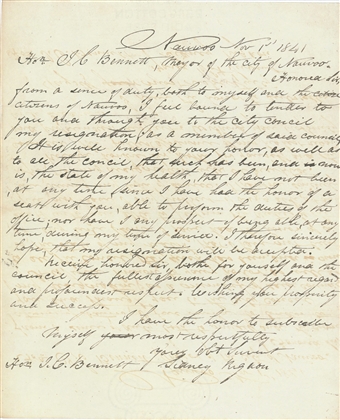 Nauvoo Nov 1st 1841
Hon J. C. Bennett, Mayor of the city of Nauvoo.
Honored Sir
From a sence of duty, both to myself and the
citizens of Nauvoo, I feel bound to tender to
you and through you to the city council
my resignation, as a member of said council
It is well known to your honor, as well as
to all the council, that such has been, and is now
is, the state of my health, that I have not been
at any time, since I have had the honor of a
seat with you, able to perform the duties of the
office, nor have I any prospect of being able, at any
time during my time of service. I therefore sincerely
hope, that my resignation will be accepted.
Receive honored sir, both for yourself and the
council the fullest assurance of my highest regard
and profoundest respect. Wishing you prosperity
and success.
I have the honor to subscribe
myself your most respectfully
your Obt Servt
Hon J. C. Bennett Sidney Rigdon